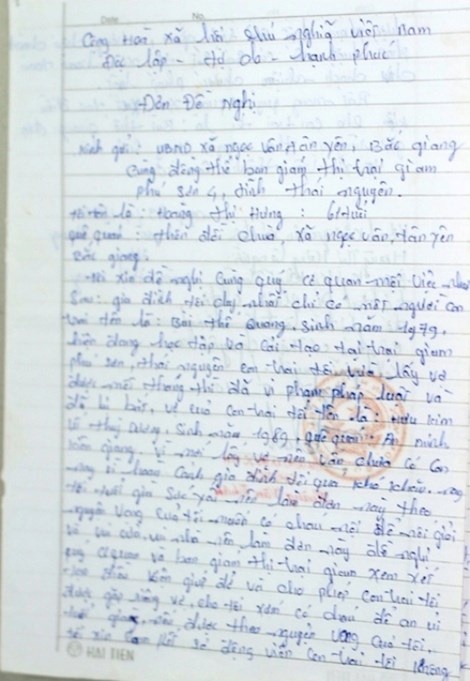 Date No.
Cộng Hoà xã hội chủ nghĩa việt nam
Độc lập - tự do - hạnh phúc
Đơn Đề nghị
kính gửi : UBND xã ngọc vân, tân yên, Bắc giang
Cùng đồng thể ban giám thị trại giam
phú sơn 4, tỉnh thái nguyên.
tôi tên là : Hoàng thị Hưng : 61 tuổi
quê quán : thôn đồi chùa, xã ngọc vân, tân yên
Bắc giang.
tôi xin đề nghị cùng quý cơ quan một việc như
Sau: gia đình tôi duy nhất chỉ có một người con
trai tên là : Bùi thế Quang, sinh năm 1979,
hiện đang học tập và cải tạo tại trại giam
phú sơn, thái nguyên con trai tôi vừa lấy vợ
được mấy tháng thì đã vi phạm pháp luật và
đã bị bắt, vợ của con trai tôi tên là
thuỳ Dương, Sinh năm 1989, quê quán : An minh
kiên giang, vì mới lấy vợ nên vẫn chưa có con
nay vì hoàn cảnh gia đình tôi quá khó khăn, nay
tôi tuổi già sức yếu nên làm đơn này theo
nguyện vọng của tôi muốn có cháu nội để nối giõi
nên làm đơn này đề nghị
quý cơ quan và ban giám thị trại giam xem xét
giúp đỡ và cho phép con trai tôi
được gặp riêng vợ, cho tôi xem có cháu để an ủi
tuổi già, nếu được theo nguyện vọng của tôi.
tôi xin cam kết sẽ động viên con trai tôi không
HẢI TIẾN